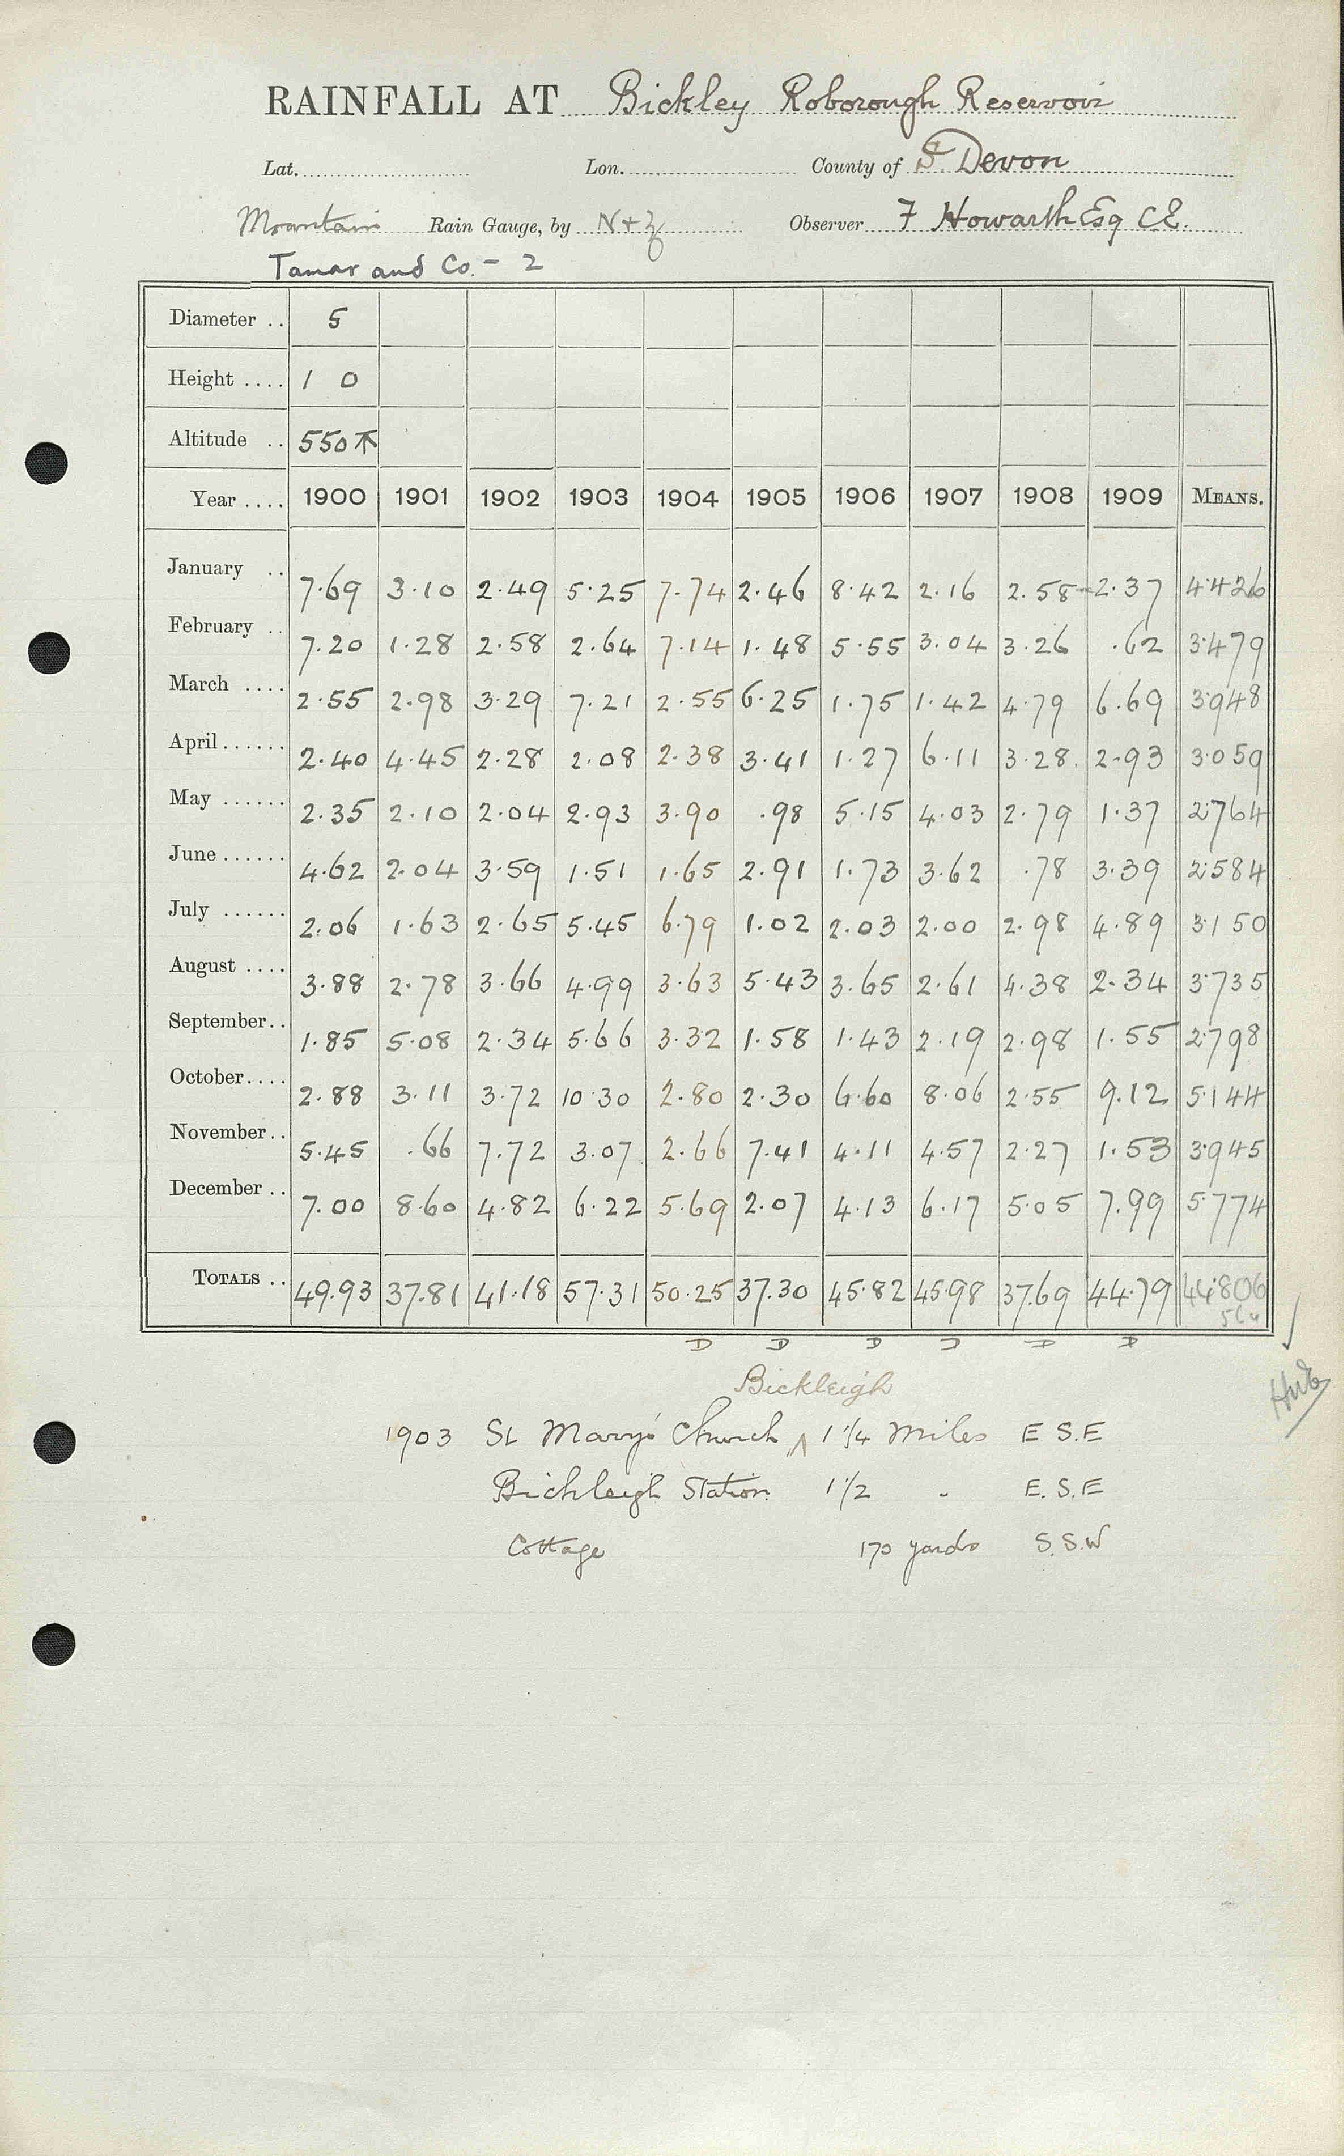 RAINFALL AT Bickley Roborough Reservoir
Lat. Lon. County of S. Devon
Mountain Rain Gauge, by N+Z Observer F Howarth Esq C.E.
Tamar and Co. - 2
Diameter .. 5
Height .... 1 0
Altitude .. 550
Year .... 1900 1901 1902 1903 1904 1905 1906 1907 1908 1909 MEANS.
January .. 7.69 3.10 2.49 5.25 7.74 2.46 8.42 2.16 2.58 2.37 4.426
February .. 7.20 1.28 2.58 2.64 7.14 1.48 5.55 3.04 3.26 .62 3.479
March .... 2.55 2.98 3.29 7.21 2.55 6.25 1.75 1.42 4.79 6.69 3.948
April...... 2.40 4.45 2.28 2.08 2.38 3.41 1.27 6.11 3.28 2.93 3.059
May ...... 2.35 2.10 2.04 2.93 3.90 .98 5.15 4.03 2.79 1.37 2.764
June...... 4.62 2.04 3.59 1.51 1.65 2.91 1.73 3.62 .78 3.39 2.584
July ...... 2.06 1.63 2.65 5.45 6.79 1.02 2.03 2.00 2.98 4.89 3.150
August .... 3.88 2.78 3.66 4.99 3.63 5.43 3.65 2.61 4.38 2.34 3.735
September.. 1.85 5.08 2.34 5.66 3.32 1.58 1.43 2.19 2.98 1.55 2.798
October.... 2.88 3.11 3.72 10.30 2.80 2.30 6.60 8.06 2.55 9.12 5.144
November.. 5.45 .66 7.72 3.07 2.66 7.41 4.11 4.57 2.27 1.53 3.945
December .. 7.00 8.60 4.82 6.22 5.69 2.07 4.13 6.17 5.05 7.99 5.774
TOTALS .. 49.93 37.81 41.18 57.31 50.25 37.30 45.82 45.98 37.69 44.79 44.806
D D D D D D
Bickleigh
1903 St Mary's Church 1 1/4 Miles E S.E
Bickleigh Station 1 1/2 " E. S. E
Cottage 170 yards S. S. W